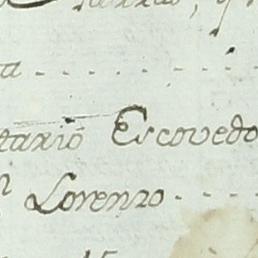 a . . . . . . .
tario Escovedo
n Lorenzo . . . .